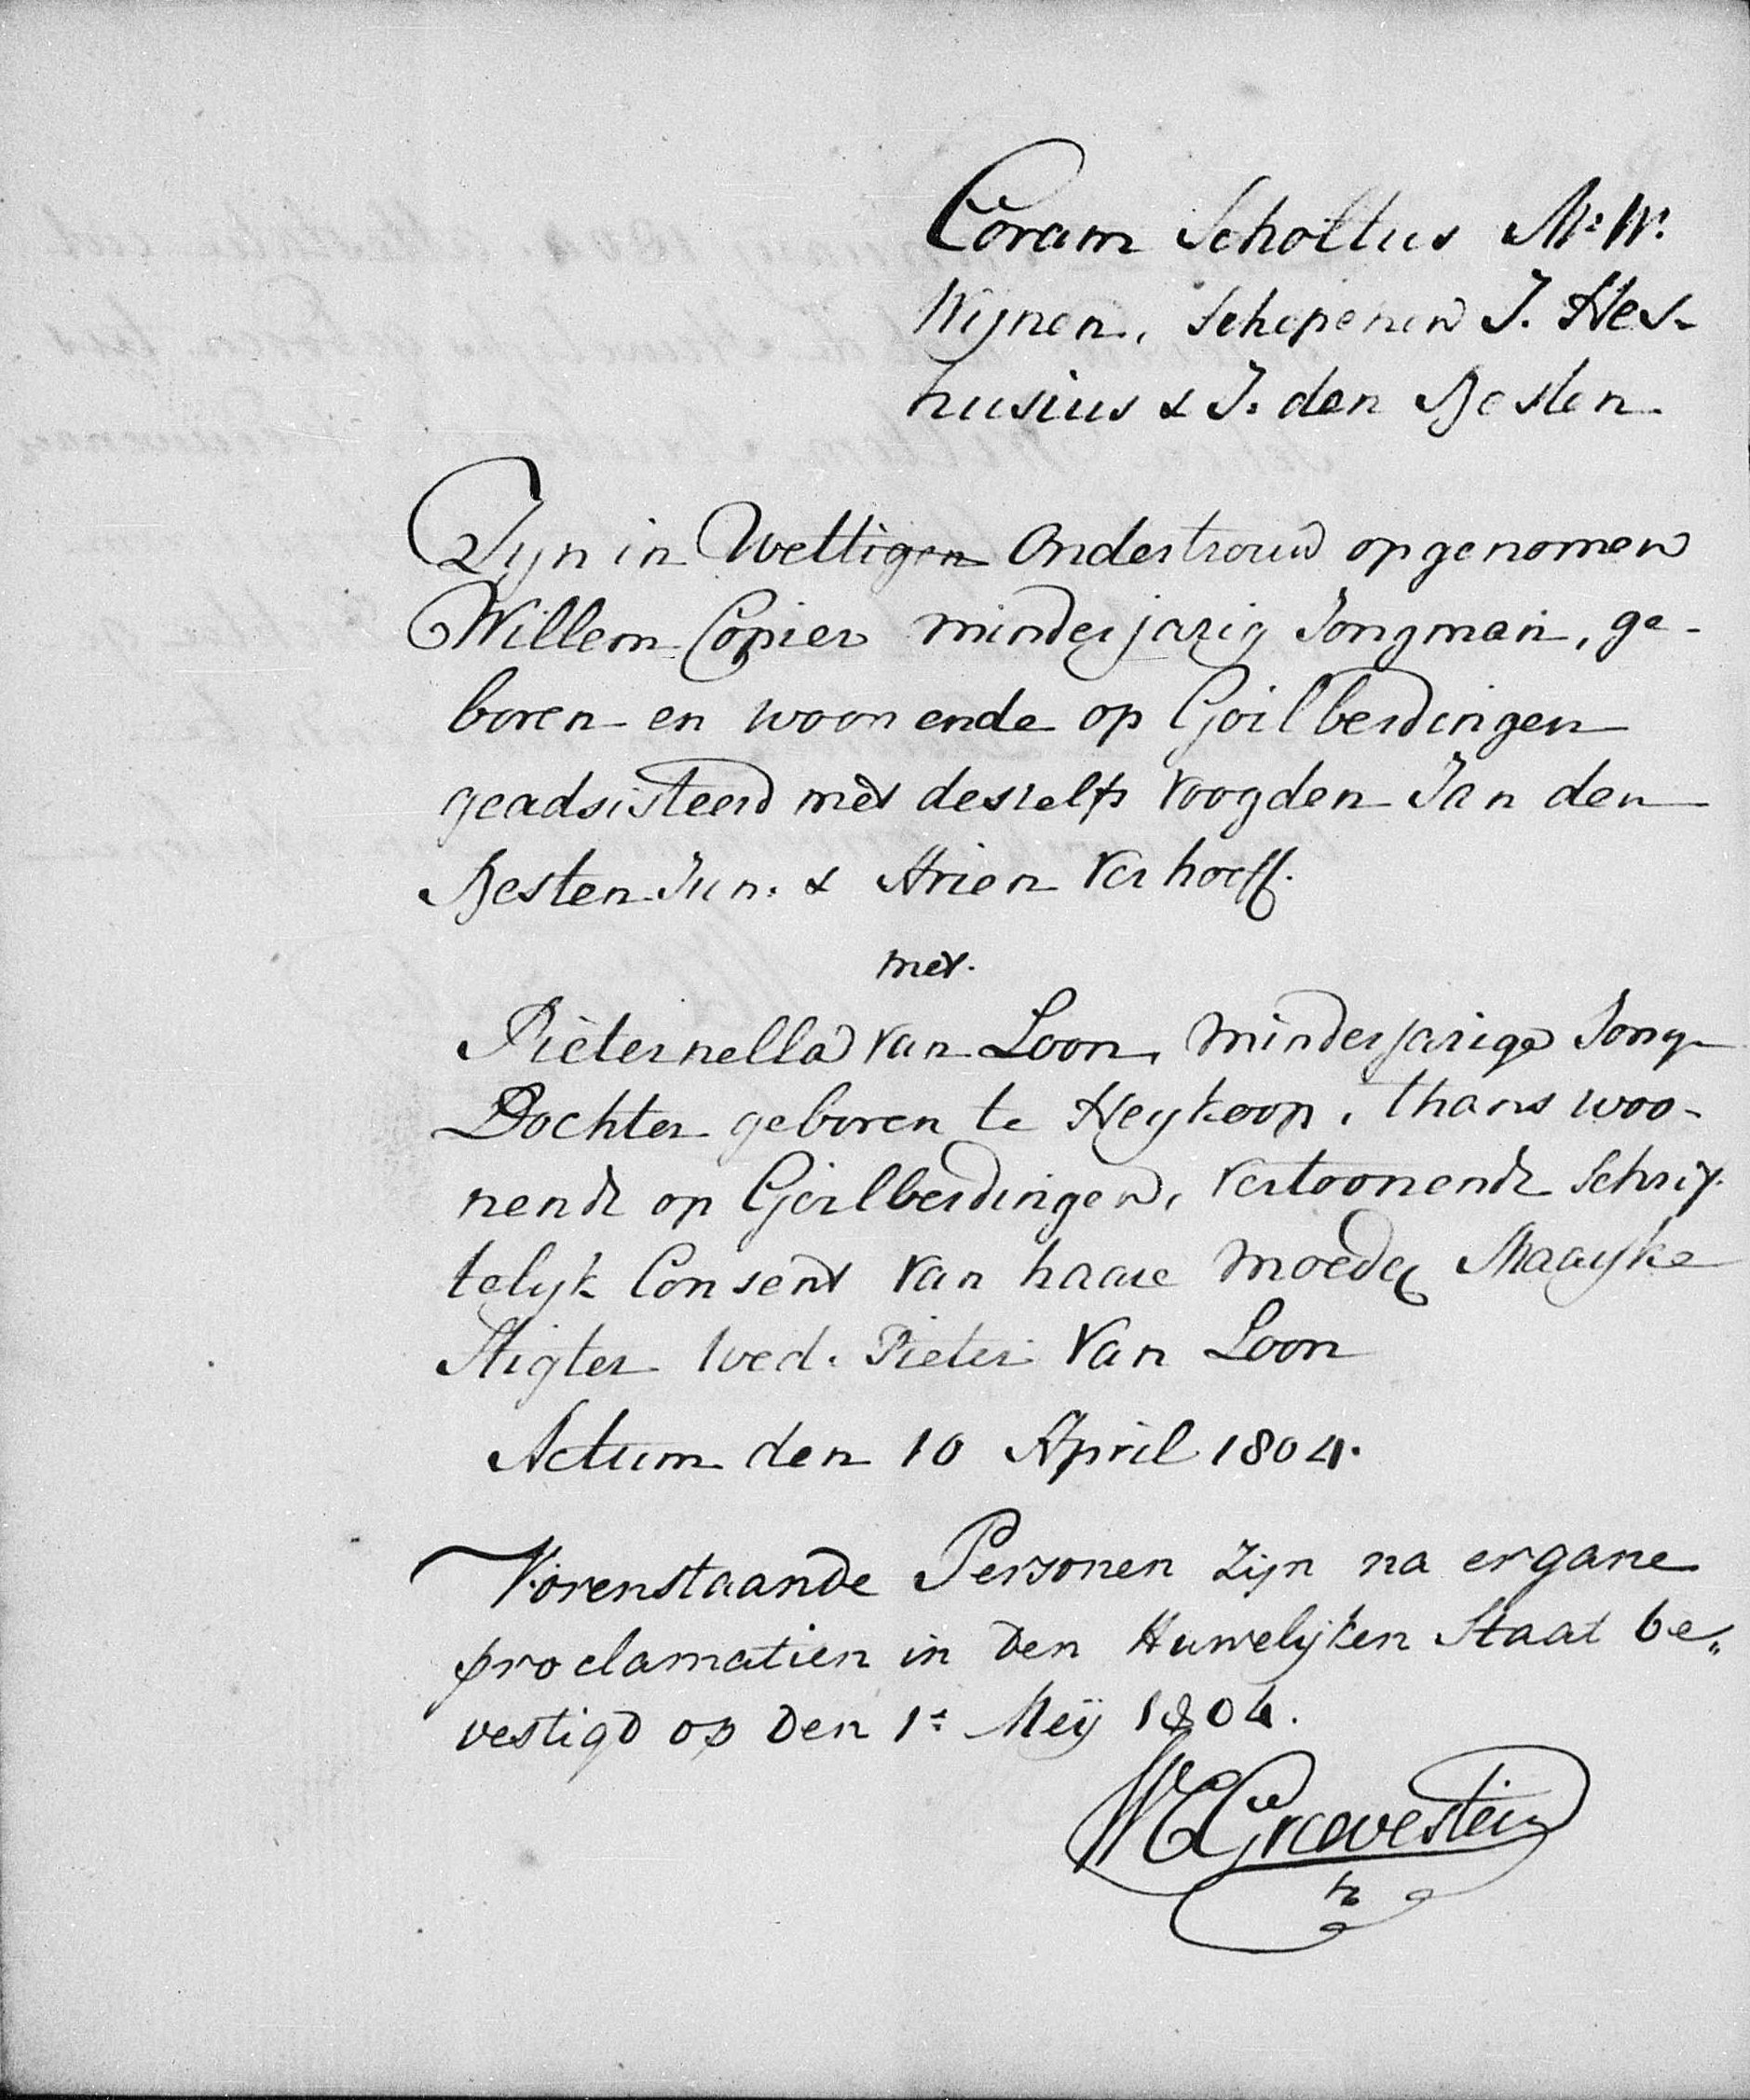 Coram Scholtus Mr. W.
Wijnen, Schepenen J. Hes-
husius & J. den Besten.
Zijn in Wettigen Ondertrouw opgenomen
Willem Copier minderjarig Jongman, ge-
boren en woonende op Goilberdingen
geadsisteerd met deszelfs Voogden Jan den
Besten Jun. & Arien Verhoeff.
met.
Pieternella van Loon, minderjarige Jong
Dochter geboren te Heykoop, thans woo-
nende op Goilberdingen, vertoonende Schrif-
telyk Consent van haare moeder Maayke
Stigter Wed. Pieter van Loon
Actum den 10 April 1804.
Vorenstaande Personen zijn na ergane
proclamatien in den Huwelyken Staat be„
vestigd op den 1e Meÿ 1804.
WE Grevestein